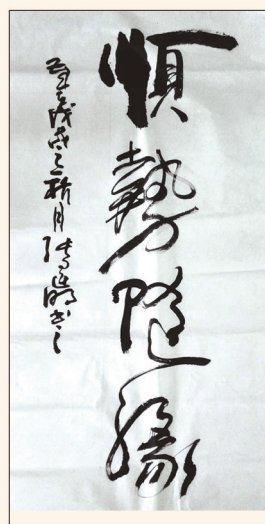 順勢隨緣
戊戌之秋月